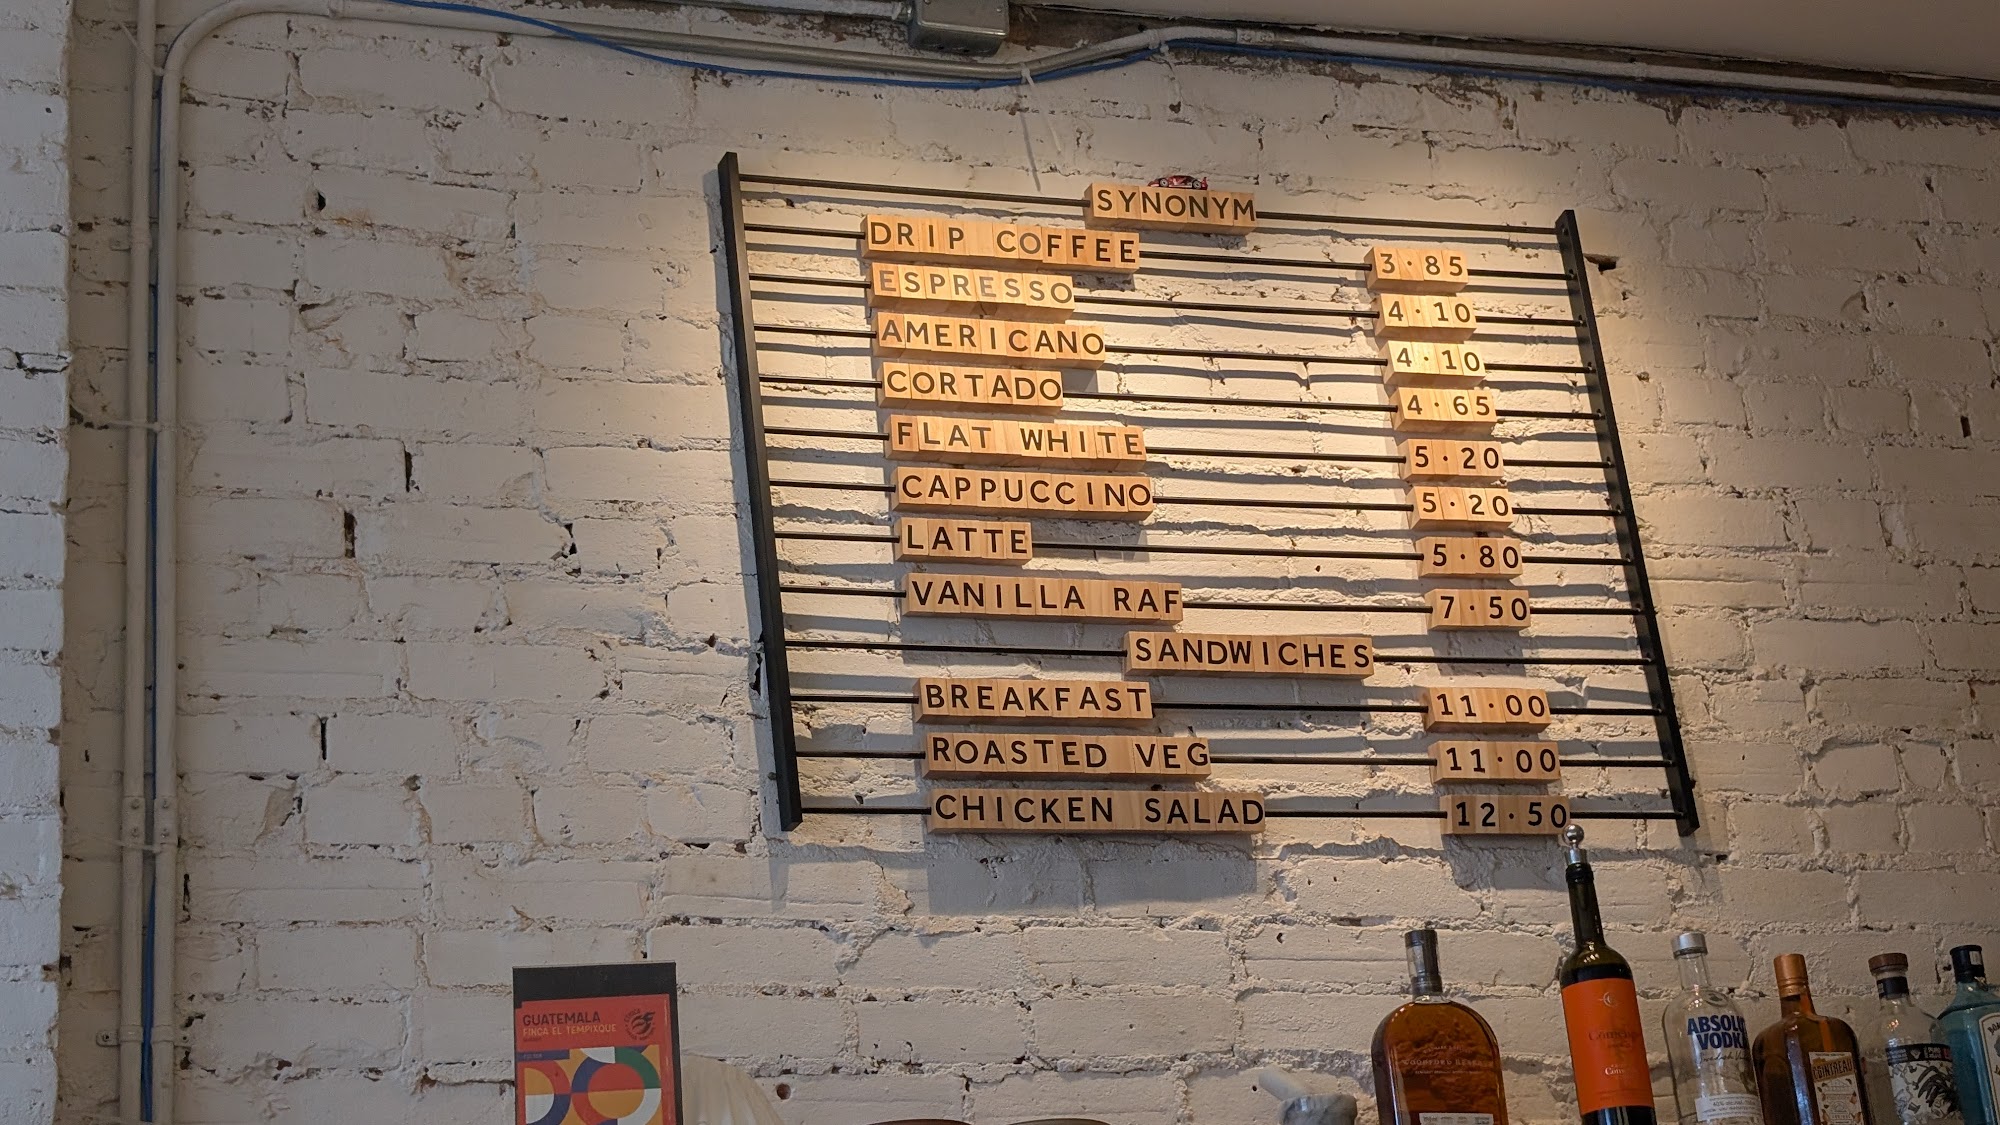 SYNONYM
DRIP COFFEE 3·85
ESPRESSO 4·10
AMERICANO 4·10
CORTADO 4·65
FLAT WHITE 5·20
CAPPUCCINO 5·20
LATTE 5·80
VANILLA RAF 7·50
SANDWICHES
BREAKFAST 11·00
ROASTED VEG 11·00
CHICKEN SALAD 12·50
GUATEMALA
FINCA EL TEMPIXQUE
ABSOLUT
VODKA
COINTREAU